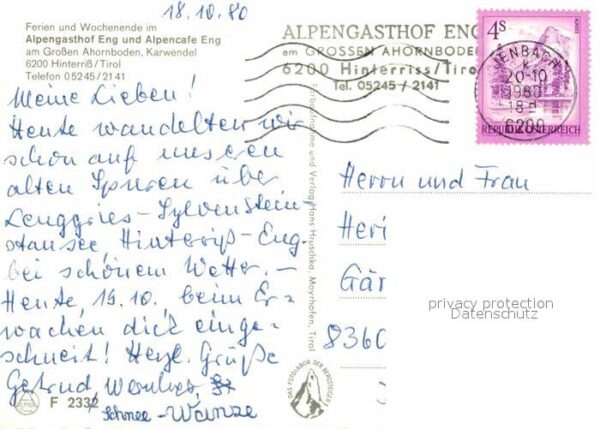 18.10.80
Ferien und Wochenende im
Alpengasthof Eng und Alpencafe Eng
am Großen Ahornboden, Karwendel
6200 Hinterriß/Tirol
Telefon 05245/2141
Meine Lieben!
Heute wandelten wir
schon auf unseren
alten Spuren über
Lenggries-Sylvenstein-
stausee, Hinteriß-Eng
bei schönem Wetter. –
Heute, 19.10. beim Er-
wachen dick einge-
schneit! Herzl. Grüße
Gertrud
Schnee-Wanze
F 2332
ALPENGASTHOF ENG
am GROSSEN AHORNBODEN
6200 Hinterriss/Tirol
Tel. 05245 / 2141
4S
REPUBLIK ÖSTERREICH
JENBACH
20-10
1980
18
6200
Farbaufnahme und Verlag Hans Hruschka, Mayrhofen, Tirol
DAS FOTOLABOR DER BERGSTEIGER
Herrn und Frau
Heri
Gär
8360
privacy protection
Datenschutz